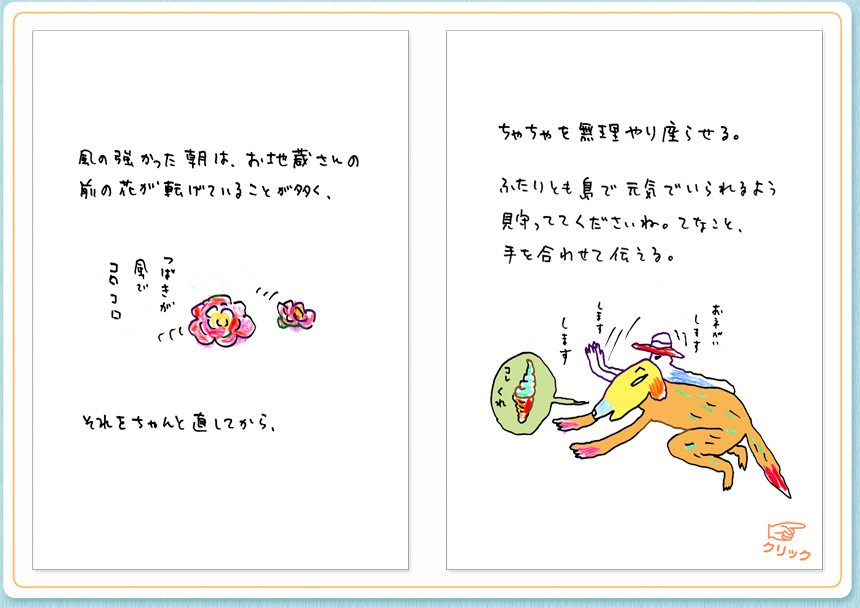 風の強かった朝は、お地蔵さんの
前の花が転げていることが多く、
つばきが
風で
コロコロ
それをちゃんと直してから、
ちゃちゃを無理やり座らせる。
ふたりとも島で元気でいられるよう
見守っててくださいね。てなこと、
手を合わせて伝える。
おねがい
します
します
します
コレくれ
クリック